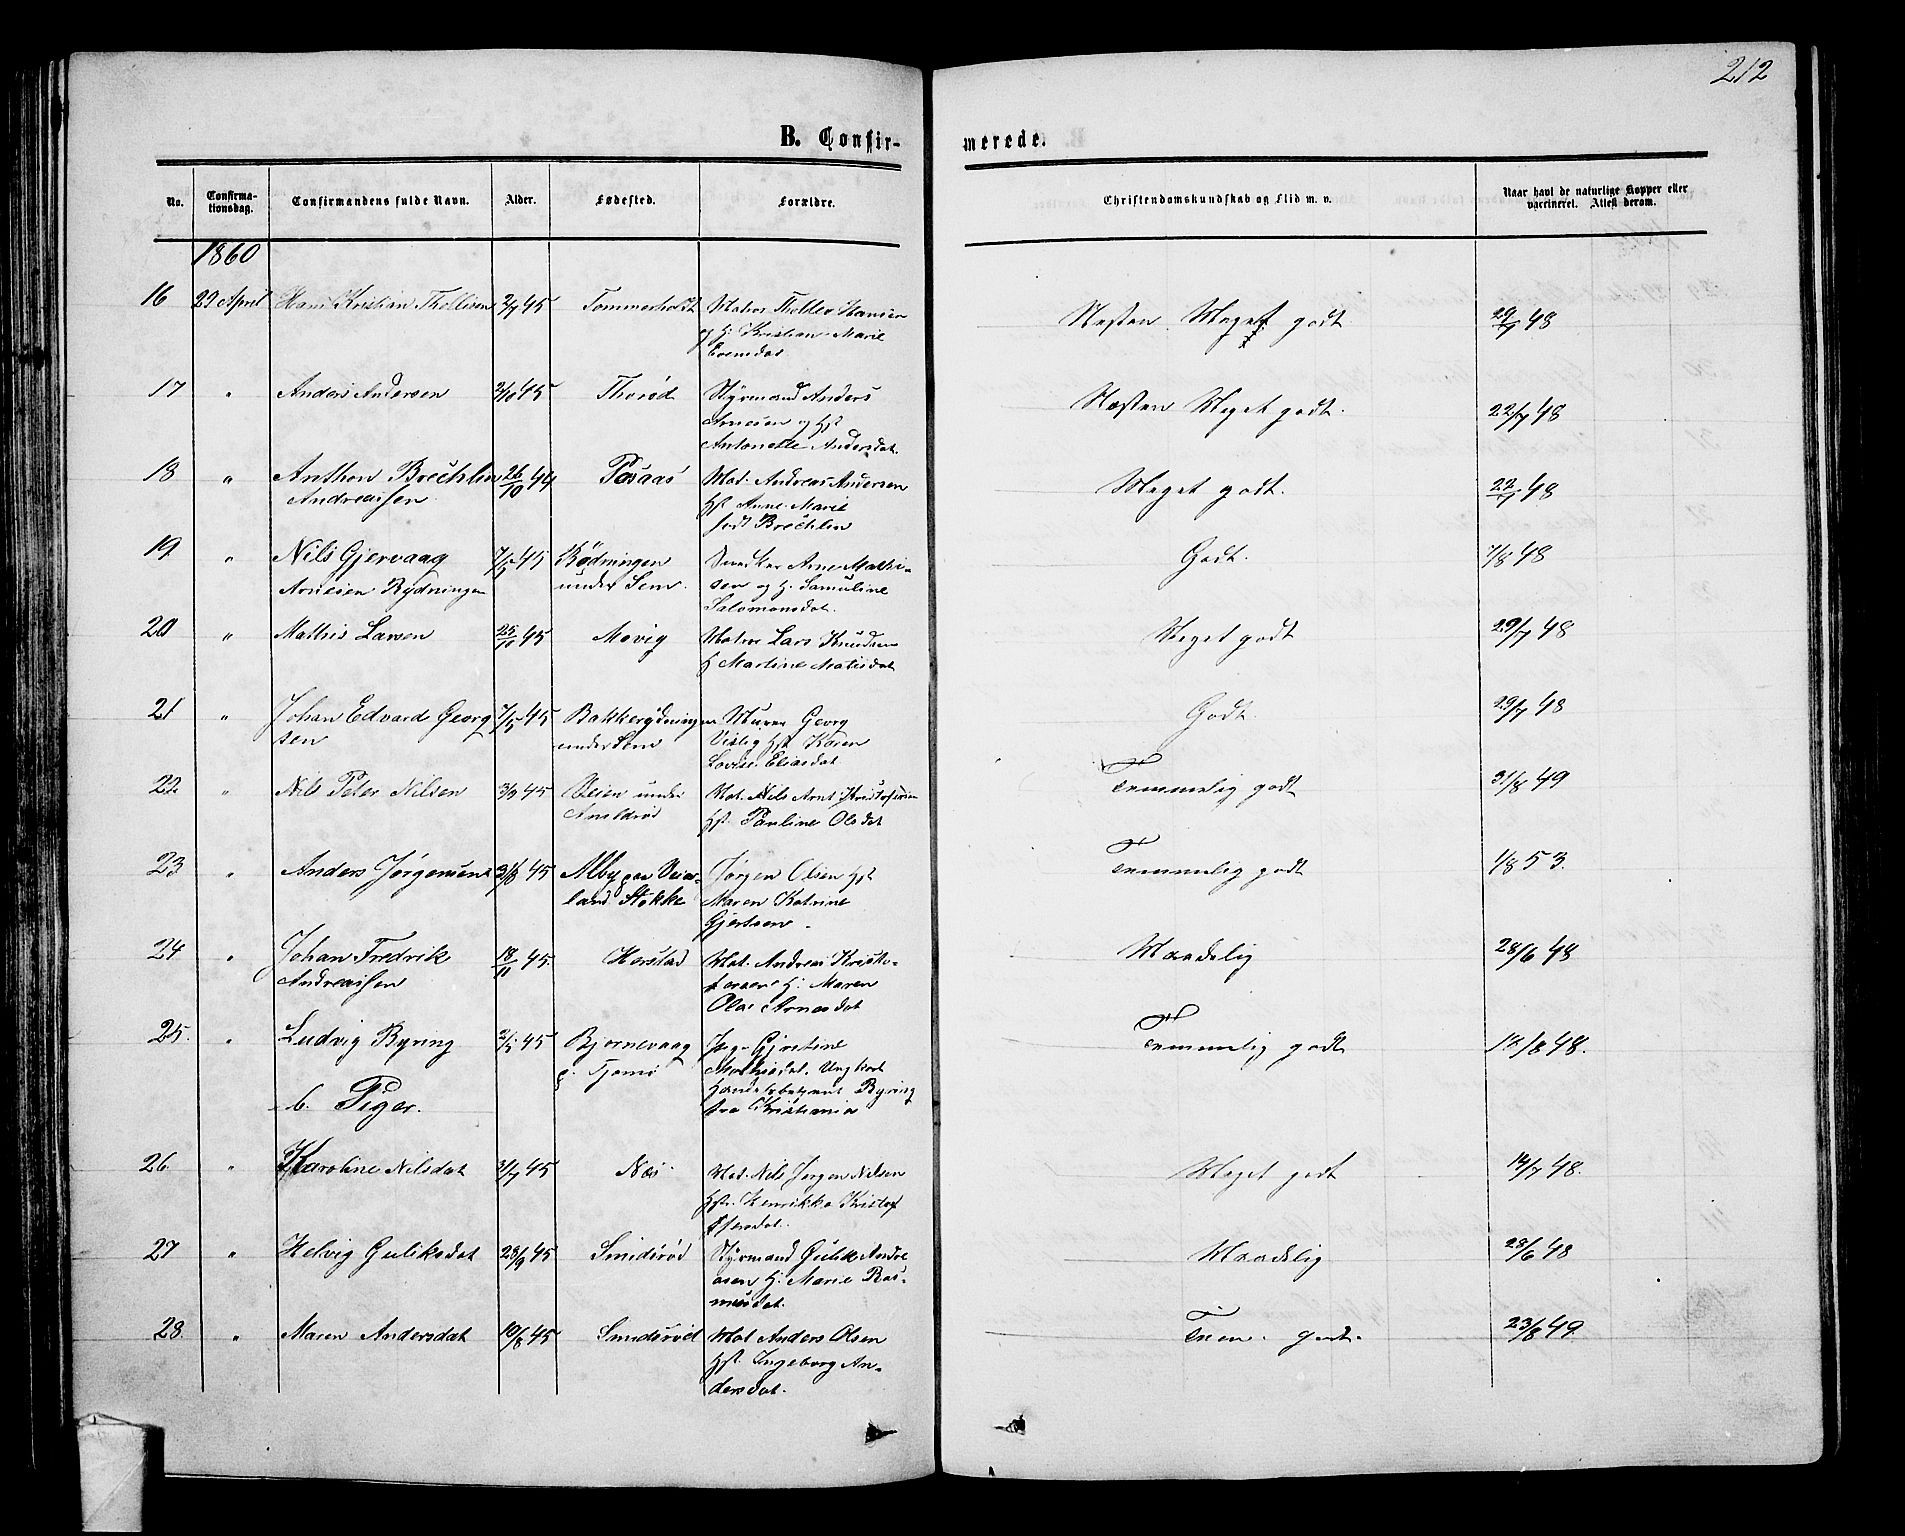 212
B. Confir-
merede.
No.
Confirma-
tionsdag.
Confirmandens fulde Navn.
Alder.
Fødested.
Forældre.
Christendomskundskab og Flid m. v.
Naar havt de naturlige Kopper eller
vaccineret. Attest derom.
1860
16 29 April Hans Kristian Thollisen 2/7 45 Tommerholdt Matros Hansen
og H. Kristian Marie
Evensdat.
Næsten Meget godt 29/7 48
17 " Anders Andersen 2/10 45 Thorød Styrmand Anders
Arnesen og Hst
Antonette Andersdat.
Næsten Meget godt. 22/7 48
18 " Anthon Brechlin
Andreassen
26/10 44 Mat. Andreas Andersen
Hst Anne Marie
født Brechlin
Meget godt. 22/7 48
19 " Nils Gjervaag
Arnesen Rydningen
7/5 45 Rødningen
under Sem.
Snedker Arne Mathi-
sen og H. Samuline
Salomonsdat.
Godt. 7/8 48
20 " Mathis Larsen 25/10 45 Movig Matros Lars Knudsen
H Martine Matisdat
Meget godt 29/7 48
21 " Johan Edvard Georg
sen
7/5 45 Bakkerydningen
under Sem
Murer Georg
Hst Karen
Lovise Eliasdat
Godt. 29/7 48
22 " Nils Peter Nilsen 3/9 45 Veien under
Mat. Nils Arnt Kristofersen
Hst. Pauline Olsdat
Temmelig godt 31/8 49
23 " Anders Jørgensen 45 Alby paa Veier-
land Stokke
Jørgen Olsen Hst
Maren Katrine
Gjertsen.
Temmelig godt 1/8 53.
24 " Johan Fredrik
Andreassen
18/11 45. Herstad Mat. Andreas Kristo-
H: Maren
Olea Arnesdat
Maadelig 28/6 48
25. " Ludvig Byring 2/5 45 Bjørnevaag
p. Tjømø
Pige Gjertine
Mathisdat. Ungkarl
Handelsbetjent Byring
fra Kristiania
Temmelig godt 18/8 48.
b. Piger.
26. " Karoline Nilsdat 3/7 45 Næs Mat. Nils Jørgen Nilsen
Hstr. Henrikke Kristof
fersdat.
Meget godt 14/7 48.
27 " Helvig Guliksdat 23/9 45 Smidsrød Styrmand Gulik Andre
asen H. Marie Ras-
musdat.
Maadelig 28/6 48
28. " Maren Andersdat 10/8 45 Smidsrød Mat Anders Olsen
Hst. Ingeborg An-
dersdat.
Tem. godt. 23/8 49.